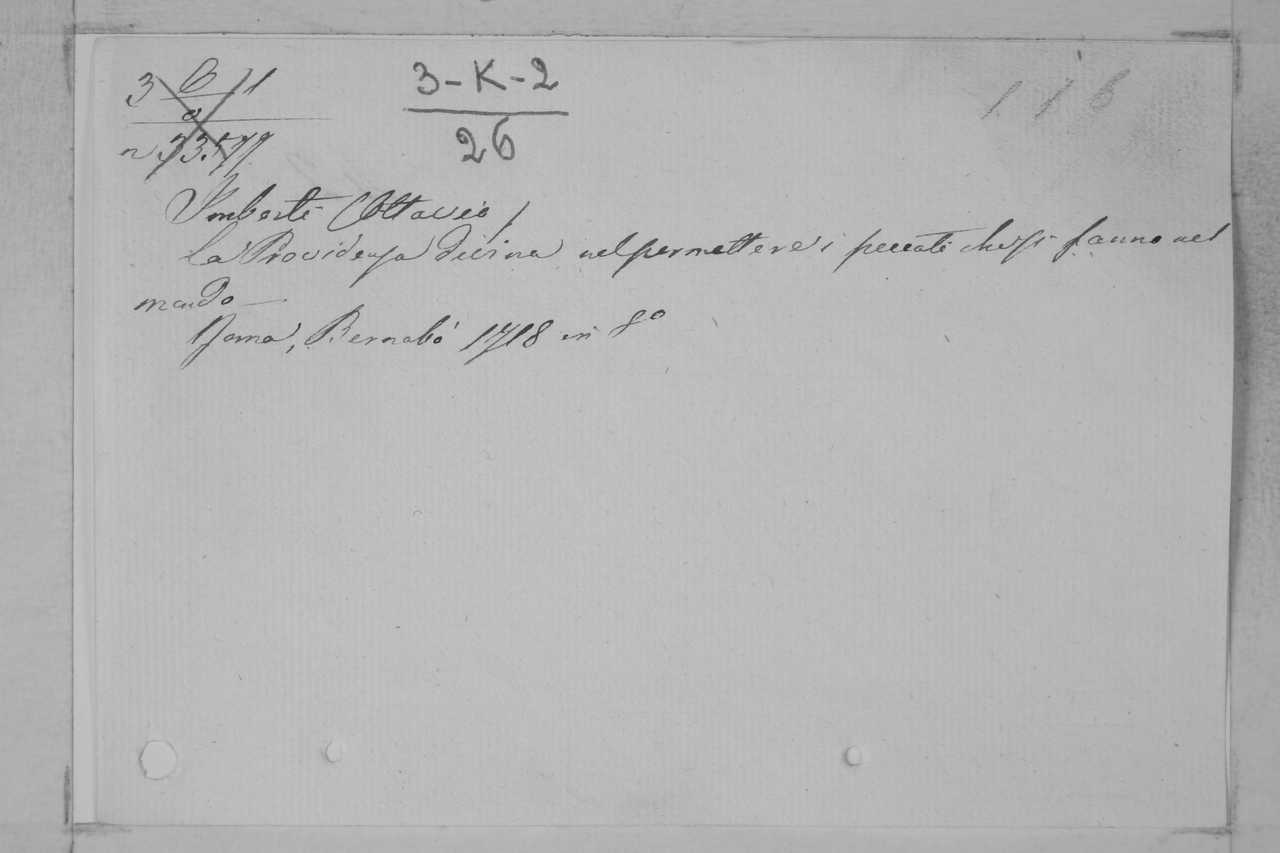 3 B 11
3-K-2
1.76
26
n 33.579
Imberti Ottavio
La Providenza divina nel permettere i peccati che si fanno nel
mondo
Roma, Bernabò 1718 in 8º